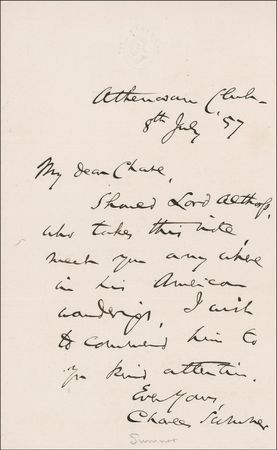 Athenaeum Club -
8th July '57
My dear Chase,
Should Lord Althorp,
who takes this note,
meet you any where
in his American
wanderings, I wish
to commend him to
yr kind attention.
Ever Yours,
Charles Sumner
Sumner